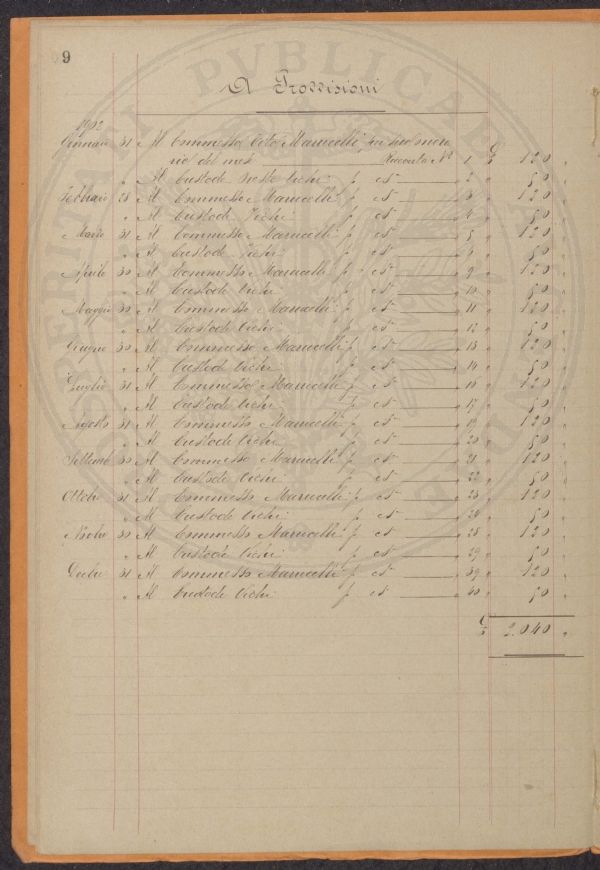 9
A Provvisioni
Gennaio 31 Al Commesso Tito Marucelli per suo onora
rio del mese Racconta No. 1 £ 120 "
" Al Custode Vichi p. ct 2 " 50 "
Febbraio 28 Al Commesso Marucelli p. ct 3 " 120 "
" Al Custode Vichi p. ct 4 " 50 "
Marzo 31 Al Commesso Marucelli p. ct 5 " 120 "
" Al Custode Vichi p. ct " 50 "
Aprile 30 Al Commesso Marucelli p. ct 9 " 120 "
" Al Custode Vichi p. ct 10 " 50 "
Maggio Al Commesso Marucelli p. ct 11 " 120 "
" Al Custode Vichi p. ct 12 " 50 "
Giugno 30 Al Commesso Marucelli p. ct 13 " 120 "
" Al Custode Vichi p. ct 14 " 50 "
Luglio 31 Al Commesso Marucelli p. ct 16 " 120 "
" Al Custode Vichi p. ct 17 " 50 "
Agosto 31 Al Commesso Marucelli p. ct 19 " 120 "
" Al Custode Vichi p. ct 20 " 50 "
Settembe 30 Al Commesso Marucelli p. ct 21 " 120 "
" Al Custode Vichi p. ct 22 " 50 "
Ottobe 31 Al Commesso Marucelli p. ct 25 " 120 "
" Al Custode Vichi p. ct 26 " 50 "
Novbe 30 Al Commesso Marucelli p. ct 28 " 120 "
" Al Custode Vichi p. ct 29 " 50 "
Decbe 31 Al Commesso Marucelli p. ct 39 " 120 "
" Al Custode Vichi p. ct 40 " 50 "
£ 2.040 "